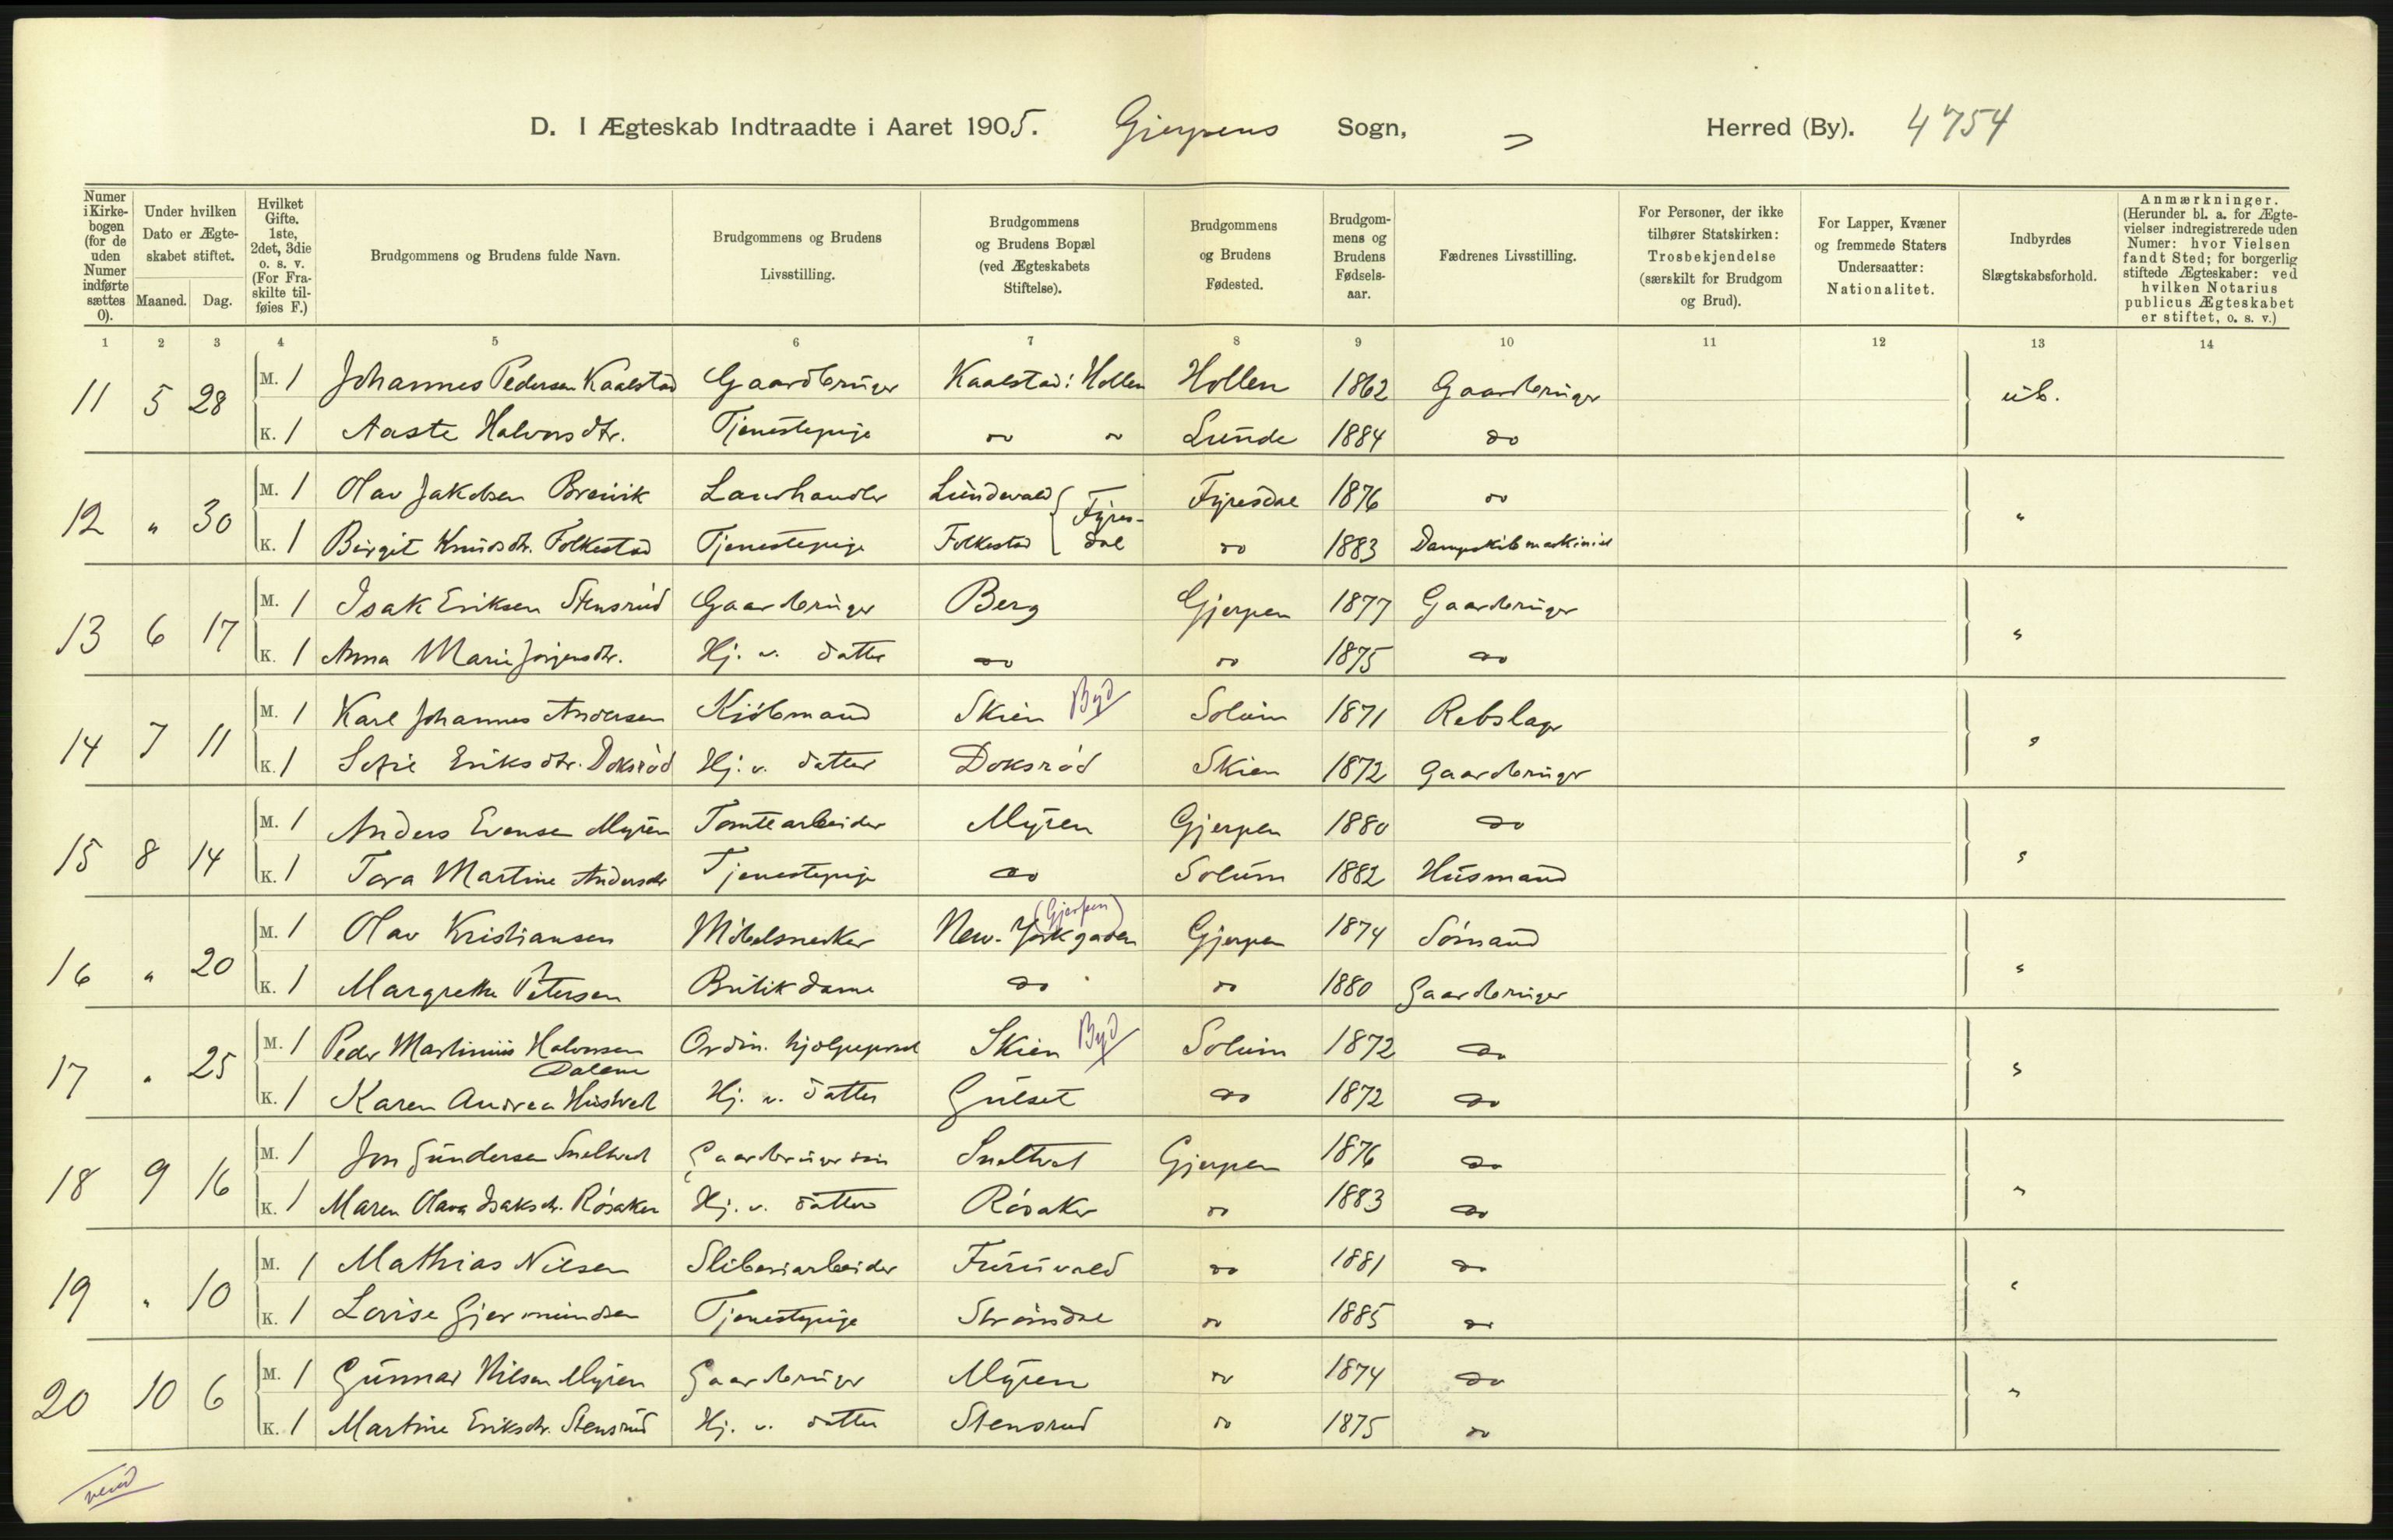 D. I Ægteskab Indtraadte i Aaret 1905. Gjerpens Sogn, Herred (By). 4754
Numer i Kirke-bogen (for de uden Numer indførte sættes 0).
Under hvilken Dato er Ægte-skabet stiftet.
Maaned. Dag.
Hvilket Gifte. 1ste, 2det, 3die o. s. v. (For Fra-skilte til-føies F.)
Brudgommens og Brudens fulde Navn.
Brudgommens og Brudens Livsstilling.
Brudgommens og Brudens Bopæl (ved Ægteskabets Stiftelse).
Brudgommens og Brudens Fødested.
Brudgom-mens og Brudens Fødsels-aar.
Fædrenes Livsstilling.
For Personer, der ikke tilhører Statskirken: Trosbekjendelse (særskilt for Brudgom og Brud).
For Lapper, Kvæner og fremmede Staters Undersaatter: Nationalitet.
Indbyrdes Slægtskabsforhold.
Anmærkninger. (Herunder bl. a. for Ægte-vielser indregistrerede uden Numer: hvor Vielsen fandt Sted; for borgerlig stiftede Ægteskaber: ved hvilken Notarius publicus Ægteskabet er stiftet, o. s. v.)
1 2 3 4 5 6 7 8 9 10 11 12 13 14
11 5 28 M. 1 Johannes Pedersen Kaalstad Gaardbruger Kaalstad: Hollen Hollen 1862 Gaardbruger ub.
K. 1 Aaste Halvorsdtr. Tjenestepige do do Lunde 1884 do
12 " 30 M. 1 Olav Jakobsen Breivik Landhandler Lundevald Fyres- Fyresdal 1876 do "
K. 1 Birgit Knudsdtr. Folkestad Tjenestepige Folkestad dal do 1883 Dampskibmaskinist
13 6 17 M. 1 Isak Eriksen Stensrud Gaardbruger Berg Gjerpen 1877 Gaardbruger "
K. 1 Anna Marie Jørgensdtr. Hj. v. datter do do 1875 do
14 7 11 M. 1 Karl Johannes Andersen Kjøbmand Skien Byd Solum 1871 Rebslager "
K. 1 Sofie Eriksdtr. Doksrød Hj. v. datter Doksrød Skien 1872 Gaardbruger
15 8 14 M. 1 Anders Evensen Myren Tomtearbeider Myren Gjerpen 1880 do "
K. 1 Tora Martine Andersdtr Tjenestepige do Solum 1882 Husmand
16 " 20 M. 1 Olav Kristiansen Møbelsnedker New-York gaden (Gjerpen) Gjerpen 1874 Sømand "
K. 1 Margrethe Petersen Butikdame do do 1880 Gaardbruger
17 " 25 M. 1 Peder Martinius Halvorsen Dalene Ordin. hjælpeprest Skien Byd Solum 1872 do "
K. 1 Karen Andrea Hustvedt Hj. v. datter Gulset do 1872 do
18 9 16 M. 1 Jon Gundersen Sneltvedt Gaardbruger søn Sneltvet Gjerpen 1876 do "
K. 1 Maren Olava Isaksdtr. Røsaker Hj. v. datter Røsaker do 1883 do
19 " 10 M. 1 Mathias Nilsen Sliberiarbeider Furuvald do 1881 do "
K. 1 Lovise Gjermundsen Tjenestepige Strømdal do 1885 do
20 10 6 M. 1 Gunnar Nilsen Myren Gaardbruger Myren do 1874 do "
K. 1 Martine Eriksdtr. Stensrud Hj. v. datter Stensrud do 1875 do
vend